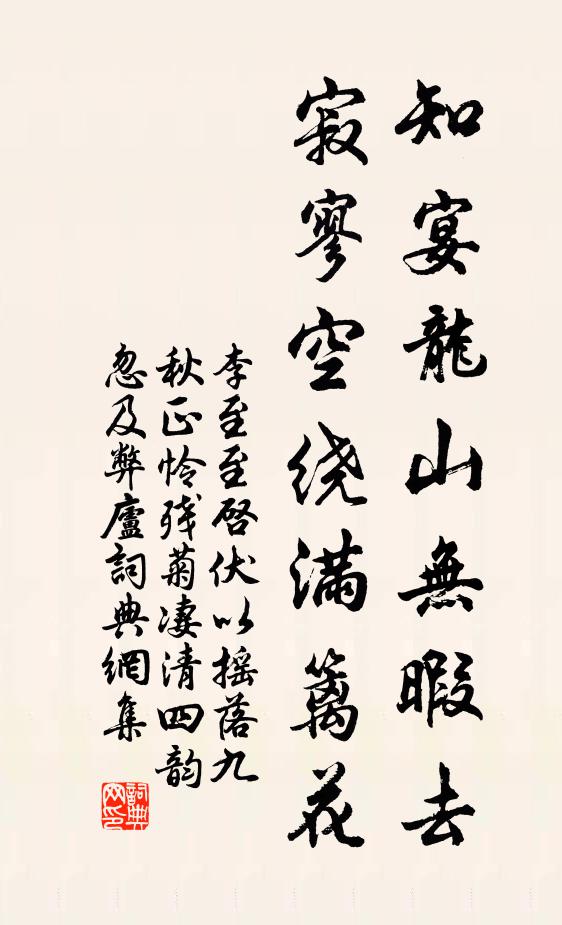 知宴龍山無暇去
寂寥空绕满篱花
李至至啓伏以摇落九
秋正怜残菊凄清四韵
忽及弊廬詞典網集
詞典网印